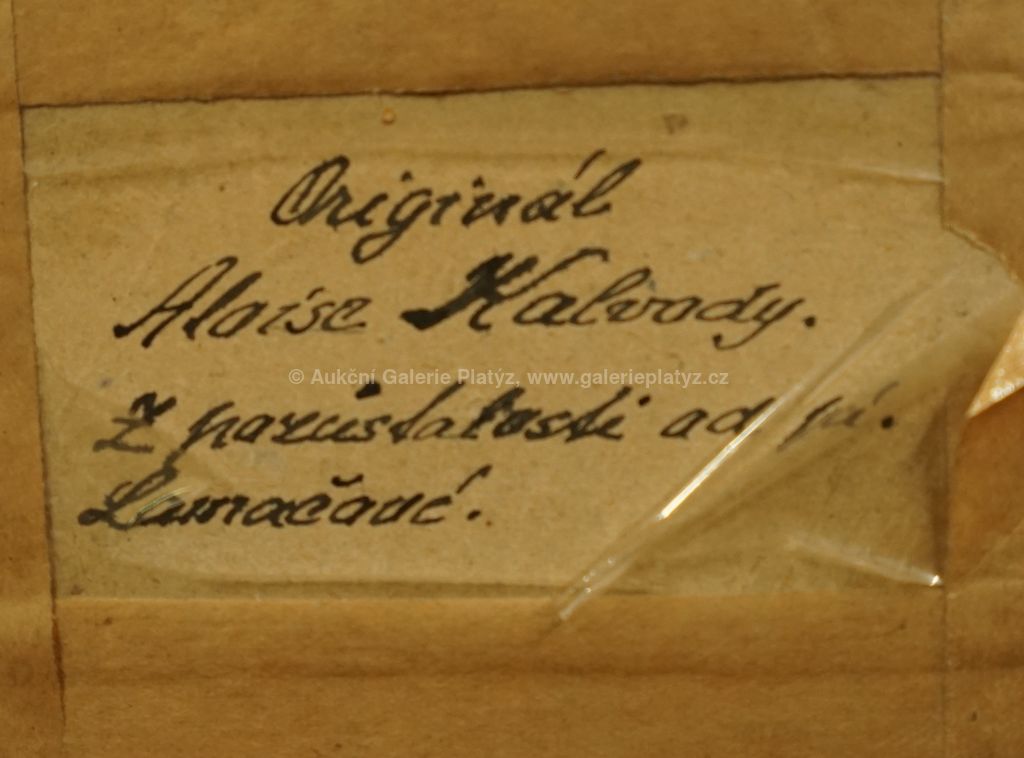 Originál
Aloise Kalvody.
© Aukční Galerie Platýz, www.galerieplatyz.cz
Z pozůstalosti od pí.
Lamačové.